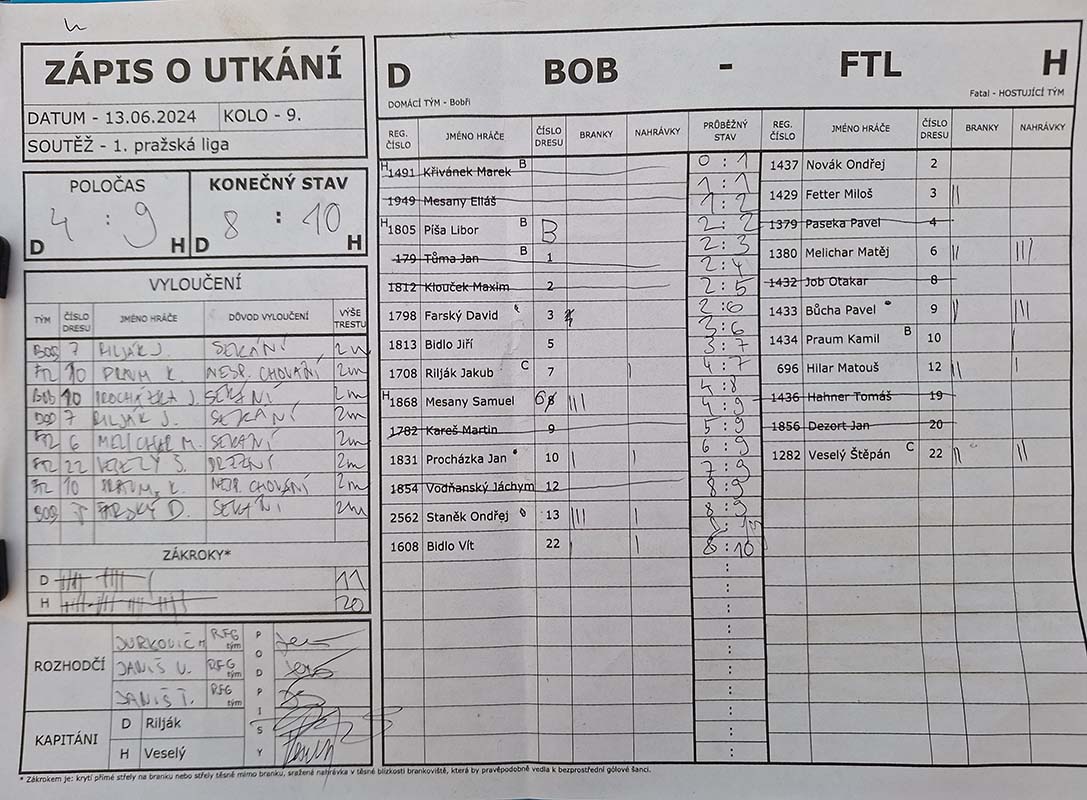 ZÁPIS O UTKÁNÍ
DATUM - 13.06.2024 KOLO - 9.
SOUTĚŽ - 1. pražská liga
POLOČAS KONEČNÝ STAV
4 : 9 8 : 10
D H D H
VYLOUČENÍ
TÝM ČÍSLO DRESU JMÉNO HRÁČE DŮVOD VYLOUČENÍ VÝŠE TRESTU
BOB 7 RILJÁK J. SEKÁNÍ 2m
FTL 10 PRAUM K. NESP. CHOVÁNÍ 2m
BOB 10 PROCHÁZKA J. SEKÁNÍ 2m
BOB 7 RILJÁK J. SEKÁNÍ 2m
FTL 6 MELICHAR M. SEKÁNÍ 2m
FTL 22 VESELÝ Š. DRŽENÍ 2m
FTL 10 PRAUM K. NESP. CHOVÁNÍ 2m
BOB FARSKÝ D. SEKÁNÍ 2m
ZÁKROKY*
D 11
H 20
ROZHODČÍ
DURKOVIČ M RFG tým
JANIŠ V. RFG tým
JANIŠ T. RFG tým
PODPISY
KAPITÁNI
D Rilják
H Veselý
D BOB - FTL H
DOMÁCÍ TÝM - Bobři Fatal - HOSTUJÍCÍ TÝM
REG. ČÍSLO JMÉNO HRÁČE ČÍSLO DRESU BRANKY NAHRÁVKY PRŮBĚŽNÝ STAV REG. ČÍSLO JMÉNO HRÁČE ČÍSLO DRESU BRANKY NAHRÁVKY
H 1491 Křivánek Marek B
1949 Mesany Eliáš
H 1805 Píša Libor B B
179 Tůma Jan B 1
1812 Klouček Maxim 2
1798 Farský David 3
1813 Bidlo Jiří 5
1708 Rilják Jakub C 7 |
H 1868 Mesany Samuel 68 |||
1782 Kareš Martin 9
1831 Procházka Jan 10 | |
1854 Vodňanský Jáchym 12
2562 Staněk Ondřej 13 ||| |
1608 Bidlo Vít 22 | |
0 : 1
1 : 1
1 : 2
2 : 2
2 : 3
2 : 4
2 : 5
2 : 6
3 : 6
3 : 7
4 : 7
4 : 8
4 : 9
5 : 9
6 : 9
7 : 9
8 : 9
8 : 10
1437 Novák Ondřej 2
1429 Fetter Miloš 3 ||
1379 Paseka Pavel 4
1380 Melichar Matěj 6 || |||
1432 Job Otakar 8
1433 Bůcha Pavel 9 || |||
1434 Praum Kamil B 10 |
696 Hilar Matouš 12 || |
1436 Hahner Tomáš 19
1856 Dezort Jan 20
1282 Veselý Štěpán C 22 || ||
* Zákrokem je: krytí přímé střely na branku nebo střely těsně mimo branku, sražená nahrávka v těsné blízkosti brankoviště, která by pravěpodobně vedla k bezprostřední gólové šanci.